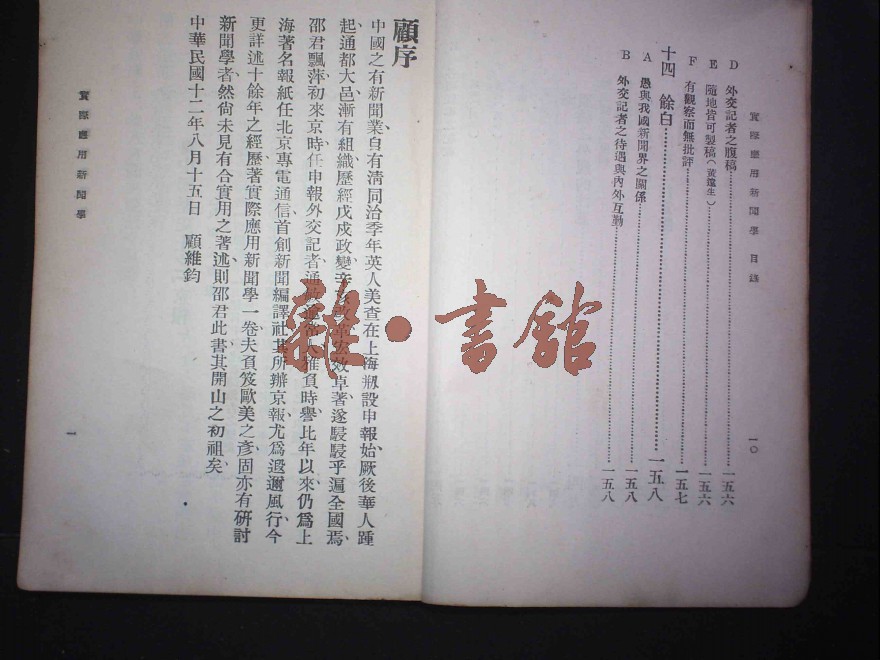 實際應用新聞學 目錄
一〇
D 外交記者之腹稿……一五六
E 隨地皆可製稿（黃遠生）……一五六
F 有觀察而無批評……一五七
十四 餘白……一五八
A 愚與我國新聞界之關係……一五八
B 外交記者之待遇與內外互勤……一五八
顧序
中國之有新聞業、自有清同治季年英人美查在上海刱設申報始、厥後華人踵
起、通都大邑、漸有組織、歷經戊戌政變、辛亥改革、宏效卓著、遂駸駸乎遍全國焉、
邵君飄萍、初來京時、任申報外交記者、通敏、雅負時譽、比年以來、仍爲上
海著名報紙任北京專電通信、首創新聞編譯社、其所辦京報、尤爲遐邇風行、今
更詳述十餘年之經歷、著實際應用新聞學一卷、夫負笈歐美之彥、固亦有研討
新聞學者、然尙未見有合實用之著述、則邵君此書、其開山之初祖矣、
中華民國十二年八月十五日 顧維鈞
實際應用新聞學
一
雜·書館